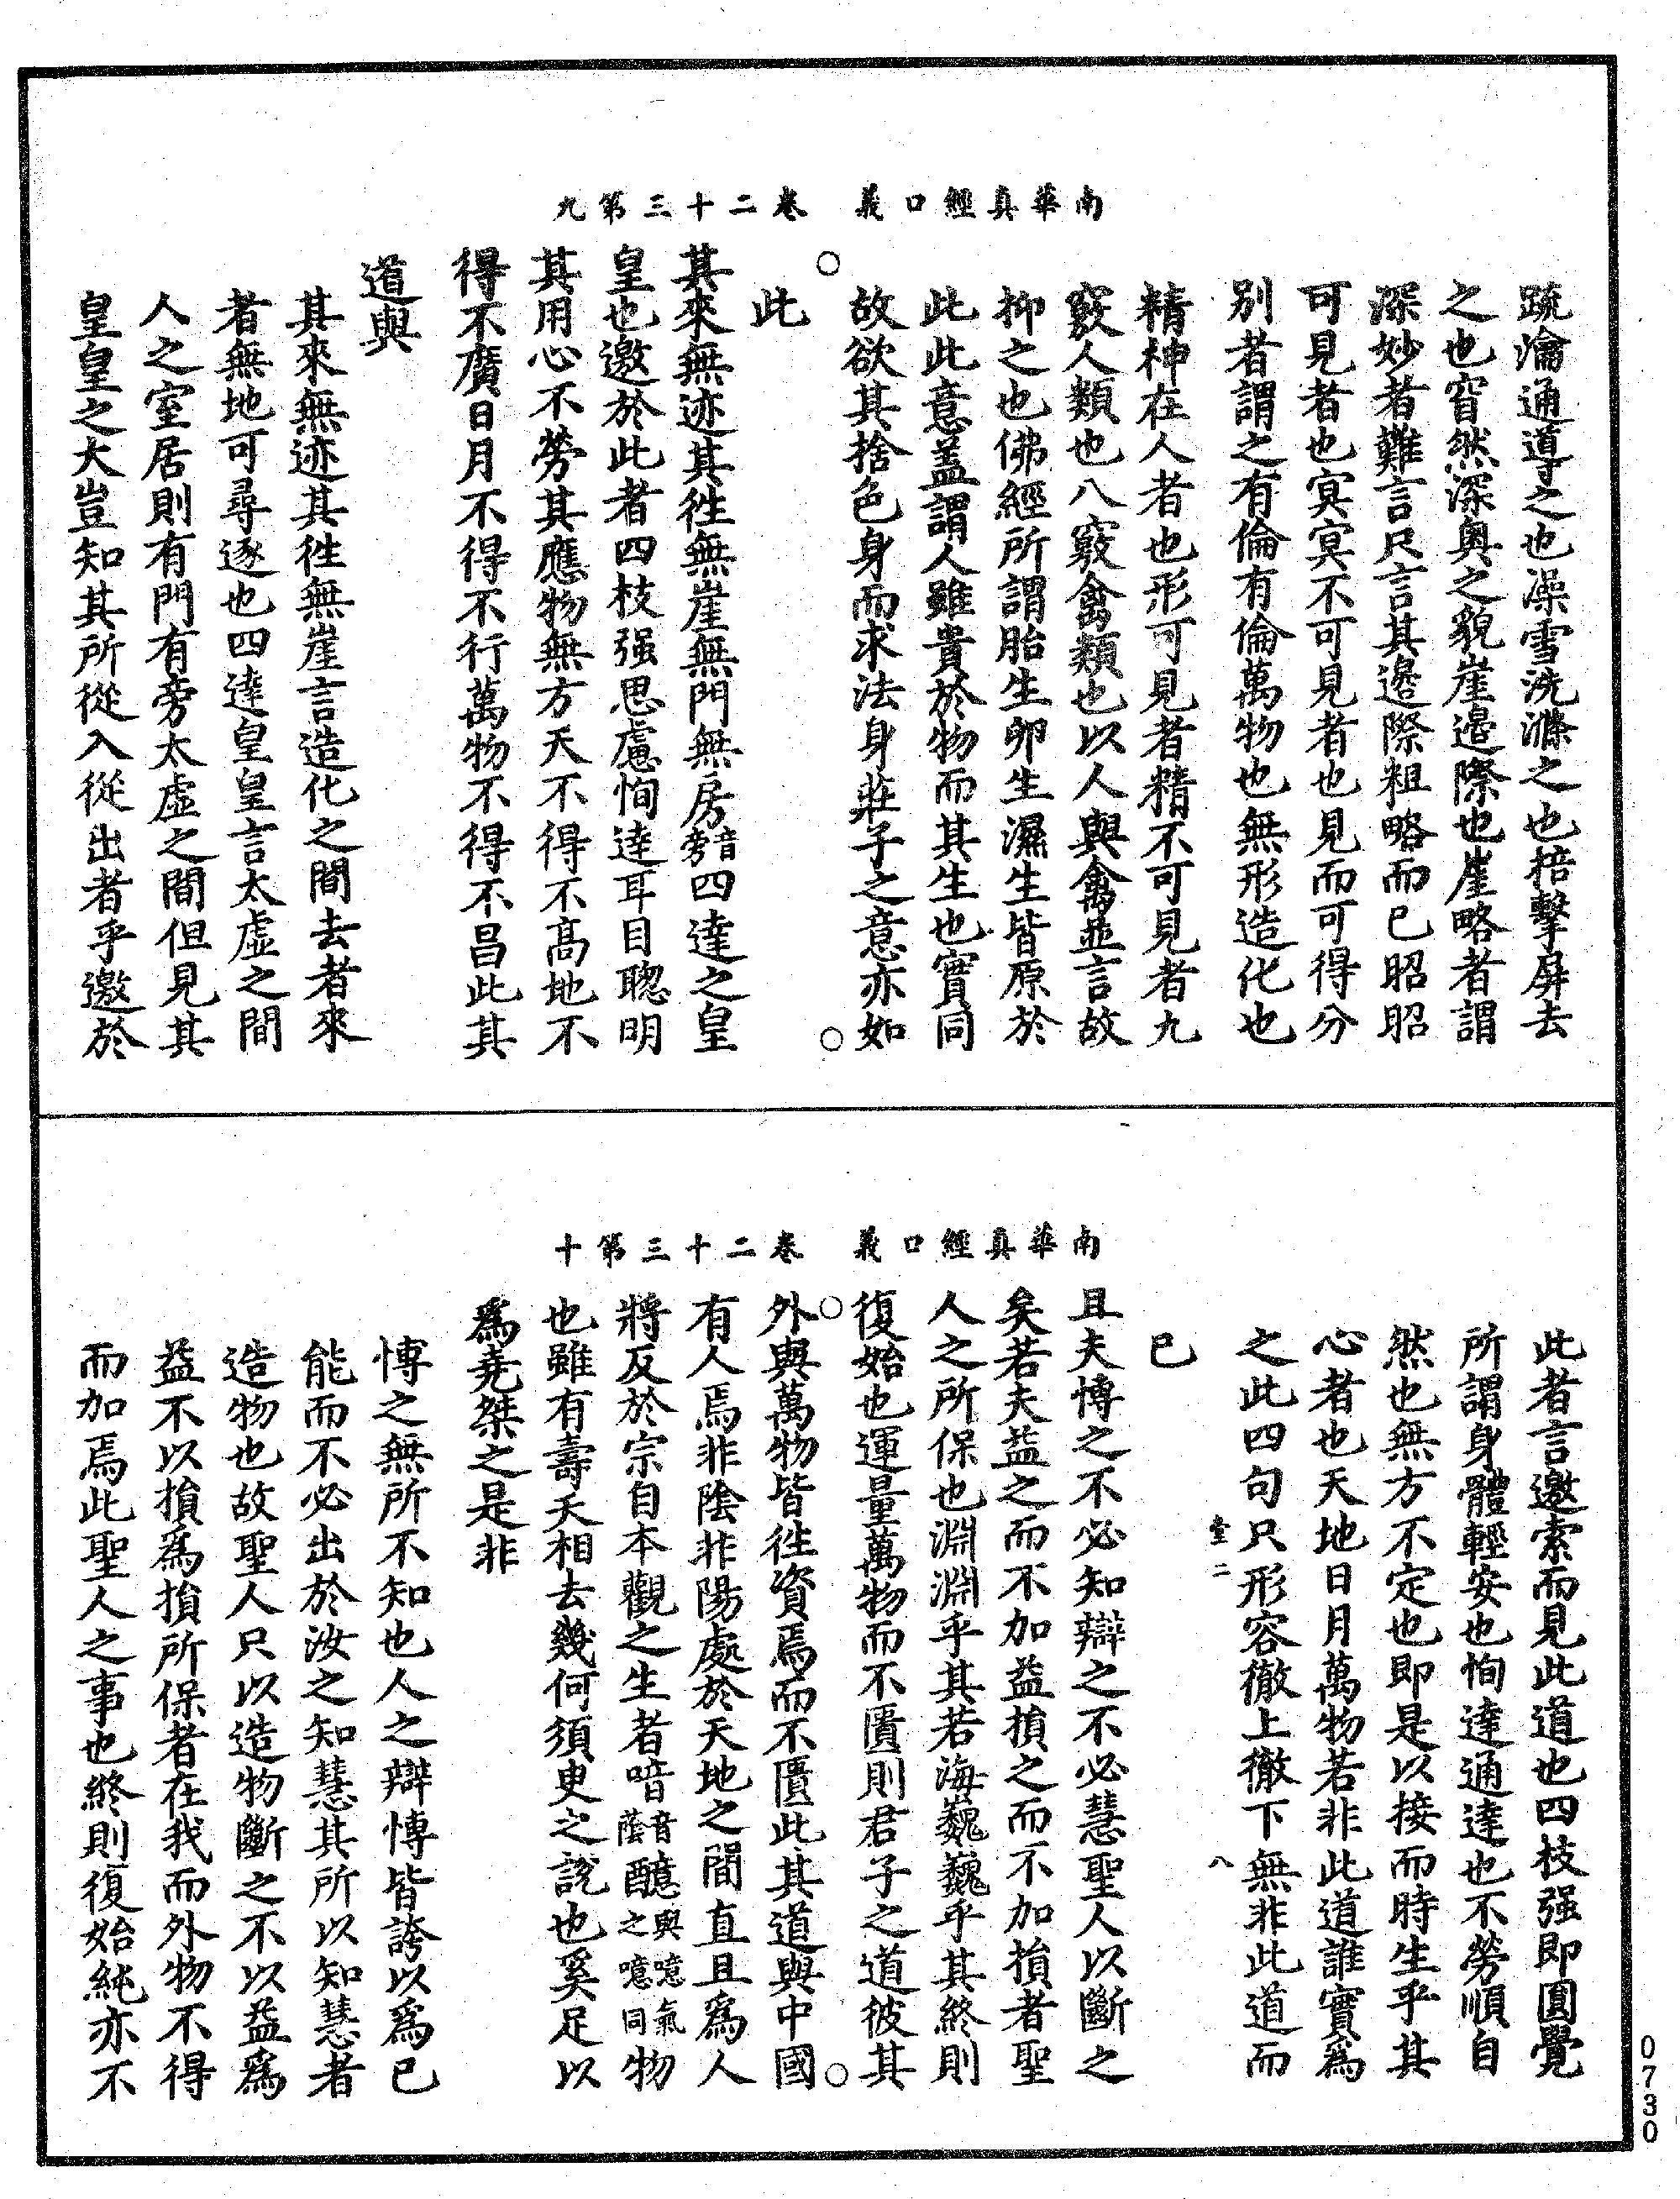 南華真經口義　卷二十三第九
疏瀹通導之也澡雪洗滌之也掊擊屏去
之也窅然深奧之貌崖邊際也崖略者謂
深妙者難言只言其邊際粗略而已昭昭
可見者也冥冥不可見者也見而可得分
別者謂之有倫有倫萬物也無形造化也
精神在人者也形可見者精不可見者九
竅人類也八竅禽類也以人與禽並言故
抑之也佛經所謂胎生卵生濕生皆原於
此此意蓋謂人雖貴於物而其生也實同
故欲其捨色身而求法身莊子之意亦如
此
其來無迹其徃無崖無門無房音旁四達之皇
皇也邀於此者四枝强思慮恂達耳目聰明
其用心不勞其應物無方天不得不高地不
得不廣日月不得不行萬物不得不昌此其
道與
其來無迹其徃無崖言造化之間去者來
者無地可尋逐也四達皇皇言太虛之間
人之室居則有門有旁太虛之間但見其
皇皇之大豈知其所從入從出者乎邀於
南華真經口義　卷二十三第十
此者言邀索而見此道也四枝强即圓覺
所謂身體輕安也恂達通達也不勞順自
然也無方不定也即是以接而時生乎其
心者也天地日月萬物若非此道誰實爲
之此四句只形容徹上徹下無非此道而
堂二　八
已
且夫愽之不必知辯之不必慧聖人以斷之
矣若夫益之而不加益損之而不加損者聖
人之所保也淵淵乎其若海巍巍乎其終則
復始也運量萬物而不匱則君子之道彼其
外與萬物皆徃資焉而不匱此其道與中國
有人焉非陰非陽處於天地之間直且爲人
將反於宗自本觀之生者喑音蔭醷與噫氣之噫同物
也雖有壽夭相去幾何須臾之說也奚足以
爲堯桀之是非
愽之無所不知也人之辯愽皆誇以爲已
能而不必出於汝之知慧其所以知慧者
造物也故聖人只以造物斷之不以益爲
益不以損爲損所保者在我而外物不得
而加焉此聖人之事也終則復始純亦不
0730